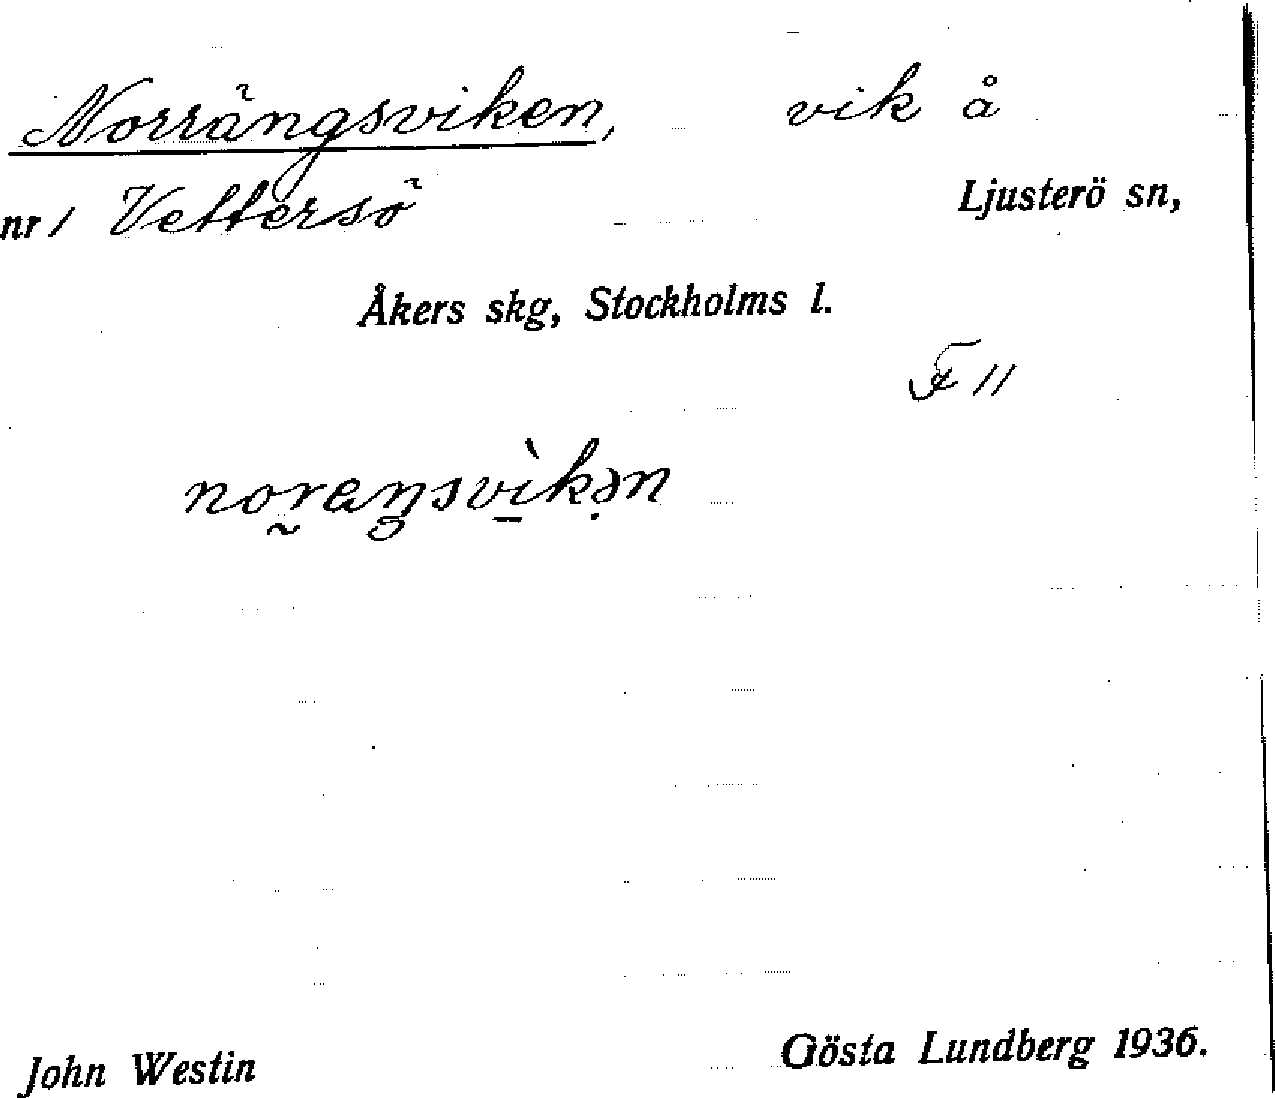 Norrängsviken, vik å
nr 1 Vettersö Ljusterö sn,
Åkers skg, Stockholms l.
F 11
noraŋsvìkən
John Westin Gösta Lundberg 1936.